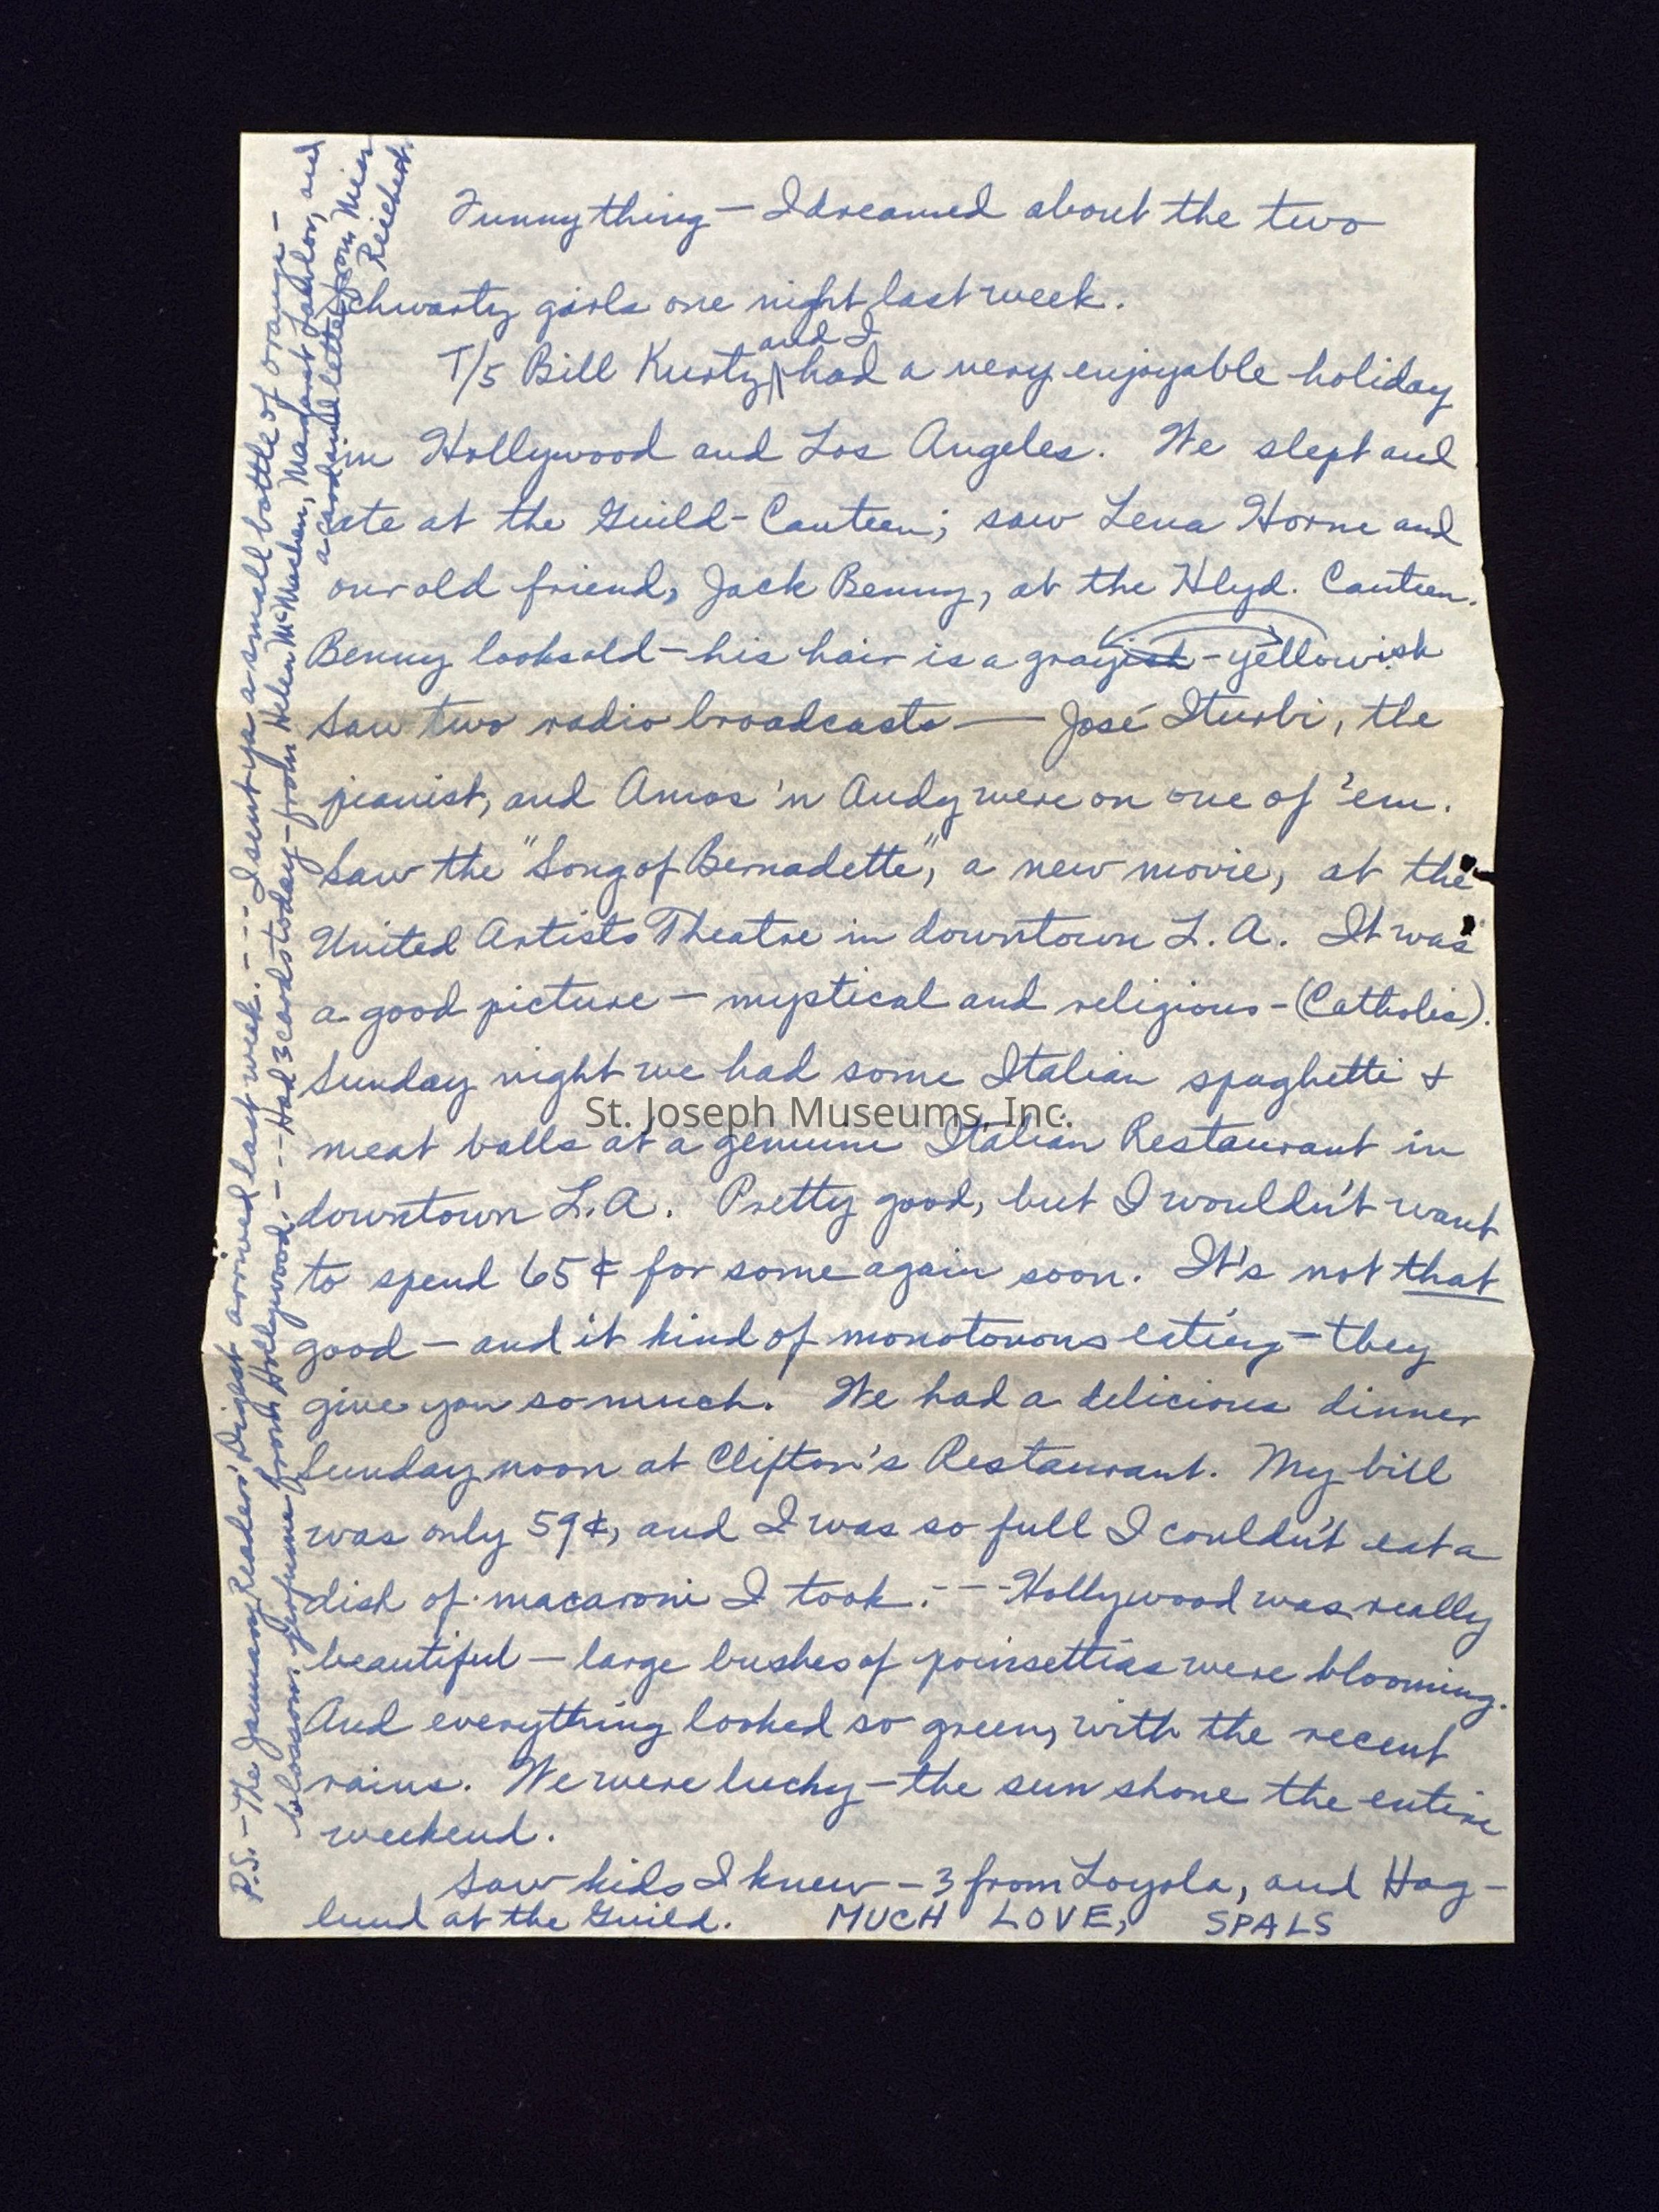 Funny thing — I dreamed about the two
Schwartz girls one night last week.
and I
T/5 Bill Kurtz had a very enjoyable holiday
in Hollywood and Los Angeles. We slept and
ate at the Guild-Canteen; saw Lena Horne and
our old friend, Jack Benny, at the Hlyd. Canteen.
Benny looks old — his hair is a grayish - yellowish
Saw two radio broadcasts — José Iturbi, the
pianist, and Amos 'n Andy were on one of 'em.
Saw the "Song of Bernadette", a new movie, at the
United Artists Theatre in downtown L.A. It was
a good picture — mystical and religious - (Catholic).
Sunday night we had some Italian spaghetti &
meat balls at a genuine Italian Restaurant in
downtown L.A. Pretty good, but I wouldn't want
to spend 65¢ for some again soon. It's not that
good — and it kind of monotonous eating — they
give you so much. We had a delicious dinner
Sunday noon at Clifton's Restaurant. My bill
was only 59¢, and I was so full I couldn't eat a
dish of macaroni I took. --- Hollywood was really
beautiful — large bushes of poinsettias were blooming.
And everything looked so green, with the recent
rains. We were lucky — the sun shone the entire
weekend.
Saw kids I knew — 3 from Loyola, and Hag-
lund at the Guild. MUCH LOVE, SPALS
P.S. — The January Readers' Digest arrived last week. --- I sent ya a small bottle of orange-
blossom perfume from Hollywood. --- Had 3 cards today - from Helen McMachen, Margaret Lawlor, and
a card and letter from Miss
Reichert.
St. Joseph Museums, Inc.